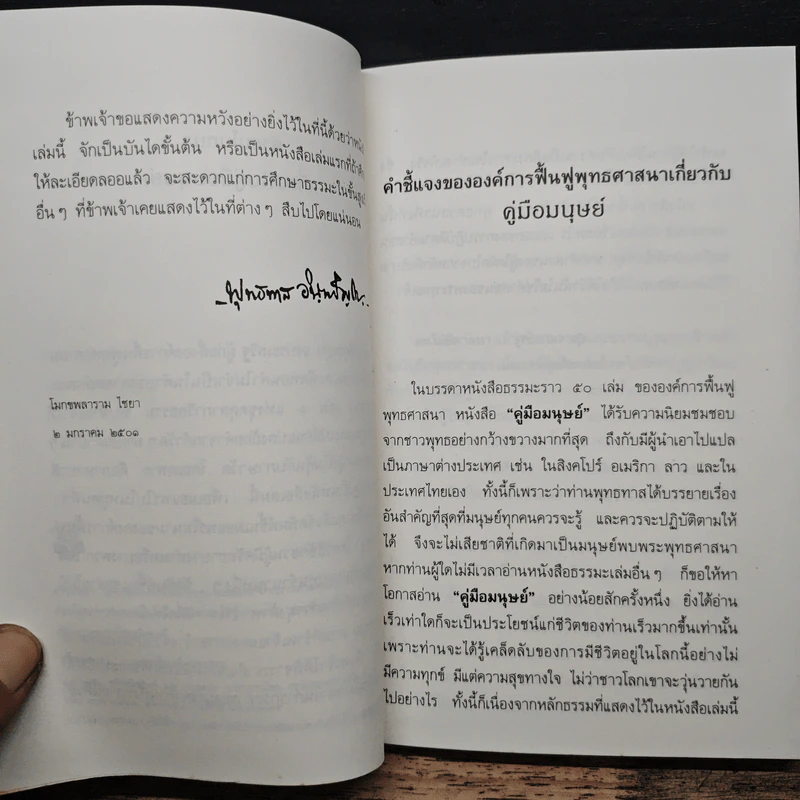 ข้าพเจ้าขอแสดงความหวังอย่างยิ่งไว้ในที่นี้ด้วยว่าหนัง
เล่มนี้ จักเป็นบันไดขั้นต้น หรือเป็นหนังสือเล่มแรกที่
ให้ละเอียดลออแล้ว จะสะดวกแก่การศึกษาธรรมะในขั้นสูง
อื่นๆ ที่ข้าพเจ้าเคยแสดงไว้ในที่ต่างๆ สืบไปโดยแน่นอน
พุทธทาส อินทปัญโญ
โมกขพลาราม ไชยา
๒ มกราคม ๒๕๐๑
คำชี้แจงขององค์การฟื้นฟูพุทธศาสนาเกี่ยวกับ
คู่มือมนุษย์
ในบรรดาหนังสือธรรมะราว ๕๐ เล่ม ขององค์การฟื้นฟู
พุทธศาสนา หนังสือ “คู่มือมนุษย์” ได้รับความนิยมชมชอบ
จากชาวพุทธอย่างกว้างขวางมากที่สุด ถึงกับมีผู้นำเอาไปแปล
เป็นภาษาต่างประเทศ เช่น ในสิงคโปร์ อเมริกา ลาว และใน
ประเทศไทยเอง ทั้งนี้ก็เพราะว่าท่านพุทธทาสได้บรรยายเรื่อง
อันสำคัญที่สุดที่มนุษย์ทุกคนควรจะรู้ และควรจะปฏิบัติตามให้
ได้ จึงจะไม่เสียชาติที่เกิดมาเป็นมนุษย์พบพระพุทธศาสนา
หากท่านผู้ใดไม่มีเวลาอ่านหนังสือธรรมะเล่มอื่นๆ ก็ขอให้หา
โอกาสอ่าน “คู่มือมนุษย์” อย่างน้อยสักครั้งหนึ่ง ยิ่งได้อ่าน
เร็วเท่าใดก็จะเป็นประโยชน์แก่ชีวิตของท่านเร็วมากขึ้นเท่านั้น
เพราะท่านจะได้รู้เคล็ดลับของการมีชีวิตอยู่ในโลกนี้อย่างไม่
มีความทุกข์ มีแต่ความสุขทางใจ ไม่ว่าชาวโลกเขาจะวุ่นวายกัน
ไปอย่างไร ทั้งนี้ก็เนื่องจากหลักธรรมที่แสดงไว้ในหนังสือเล่มนี้